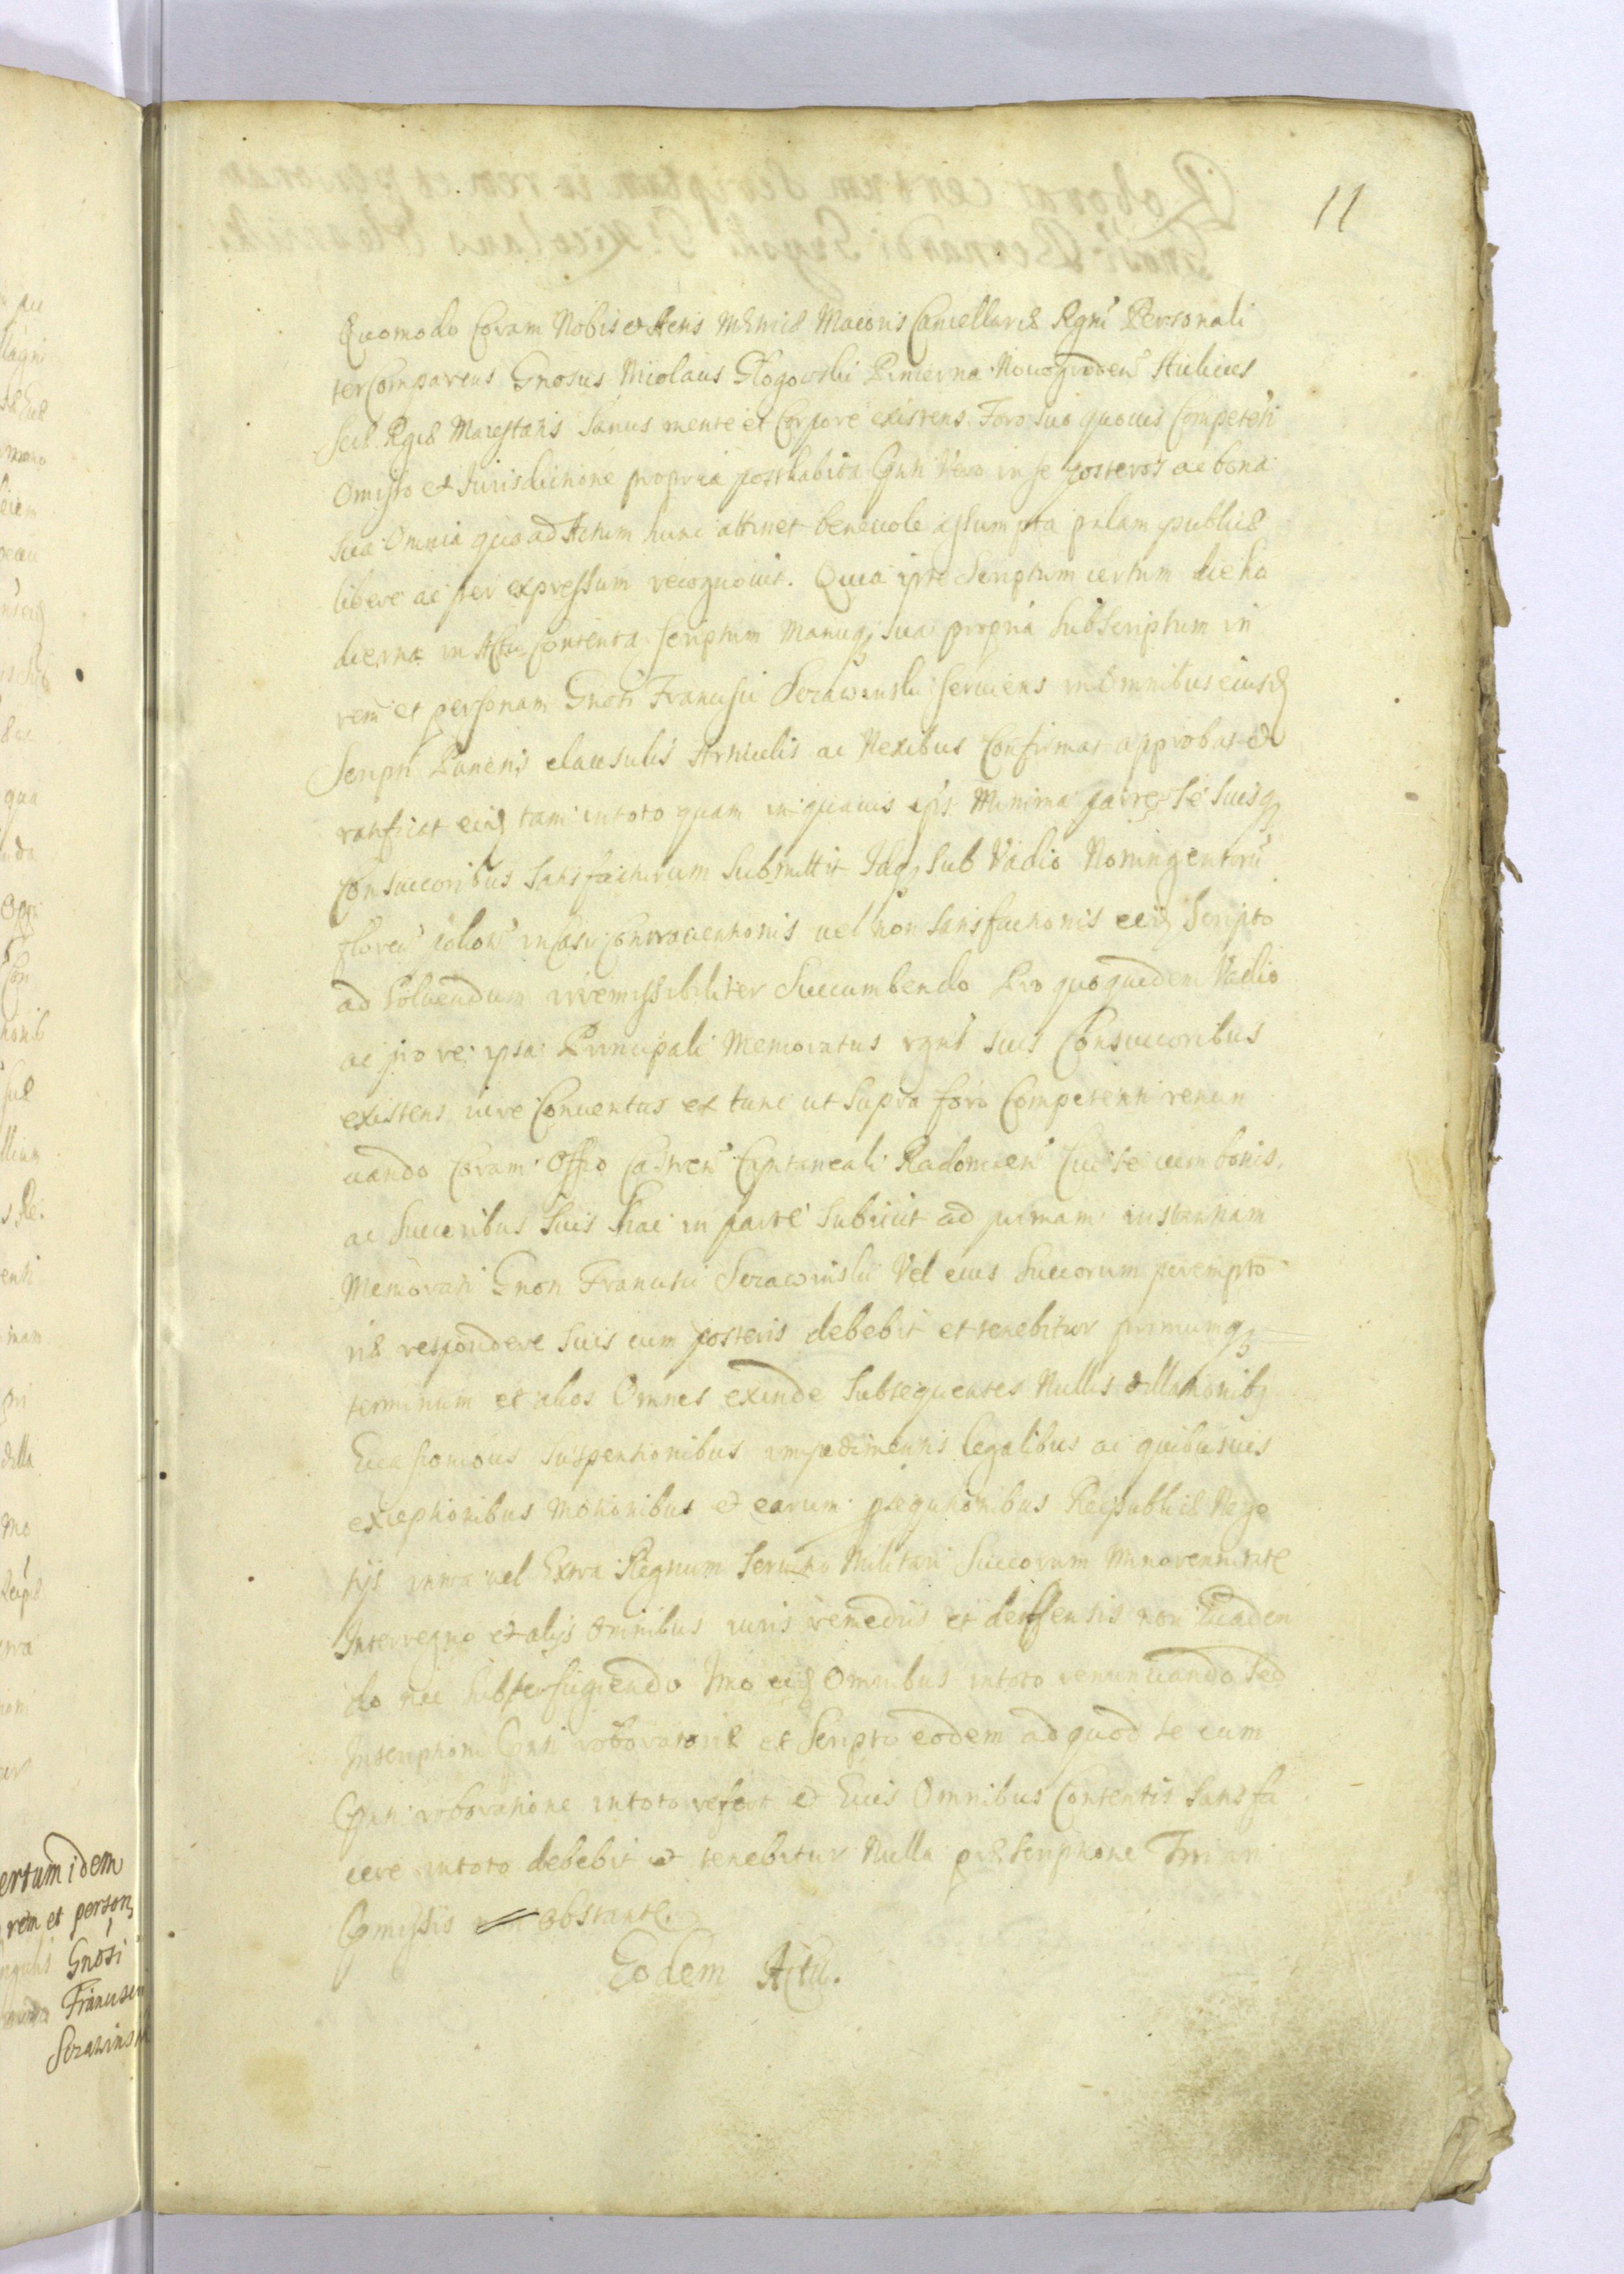 11
Quomodo Coram Nobis et Actis Metrices Maioris Cancellariæ Rgni Personali
ter Comparens Gnosus Nicolaus Glogowski Pincerna Nouogroden Aulicus
Sæ Rgiæ Maiestatis Sanus mente et Corpore existens Foro suo quouis Competēti
Omisso et Iurisdictione propria posthabita Gnti Vero in se posteros ac bona
sua Omnia quo ad Actum hunc attinet beneuole assumpta palam publicæ
libere ac per expressum recognouit. Quia ipse Scriptum certum die ho
dierna in Actu Contenta scriptum Manuq sua propria Subscriptum in
rem et personam Gnosi Francisci Scrawinski seruiens in Omnibus eiusd
Scripti Punctis clausulis Articulis ac Nexibus Confirmat approbat et
ratificat eiq tam in toto quam in quauis eius Minima parte Se Suisq
Consuccoribus Satisfacturum Submittit Idq Sub Vadio Noningentorū
floren polon in Casu Contrauentionis vel non Satisfactionis eiq Scripto
ad Soluendum irremissibiliter Succumbendo Pro quo quidem Vadio
ac pro re ipsa Principali Memoratus rgns suis Consuccoribus
existens iure Conuentus ex tunc ut Supra foro Competenti renun
ciando Coram Offo Castren Capitaneali Radomien Cui se cum bonis
ac Succoribus Suis hac in parte Subiicit ad primam instantiam
Memorati Gnosi Francisci Scrawinski Vel eius Succorum perempto
riæ respondere Suis cum posteris debebit et tenebitur primumq
terminum et alios Omnes exinde Subsequentes Nullis dillationib
Euasionibus Suspentionibus impedimentis legalibus ac quibusuis
exceptionibus Motionibus et earum Reipublicæ Nego
tijs intra vel Extra Regnum Seruitio Militari Succorum Minorennitate
Interregno et alijs Omnibus iuris remediis et deffensis non Euaden
do nec Subterfugiendo Imo eiq Omnibus in toto renunciando Sed
Inscriptioni Gnti roboratoriæ et Scripto eodem ad quod se cum
Gnti roboratione in toto refert et Eius Omnibus Contentis Satisfa
cere in toto debebit et tenebitur Nulla præscriptione Trini
Gmissis obstante.
Eodem Actu.
ertum idem
rem et person
Gnosi
Francisci
Scrawinski